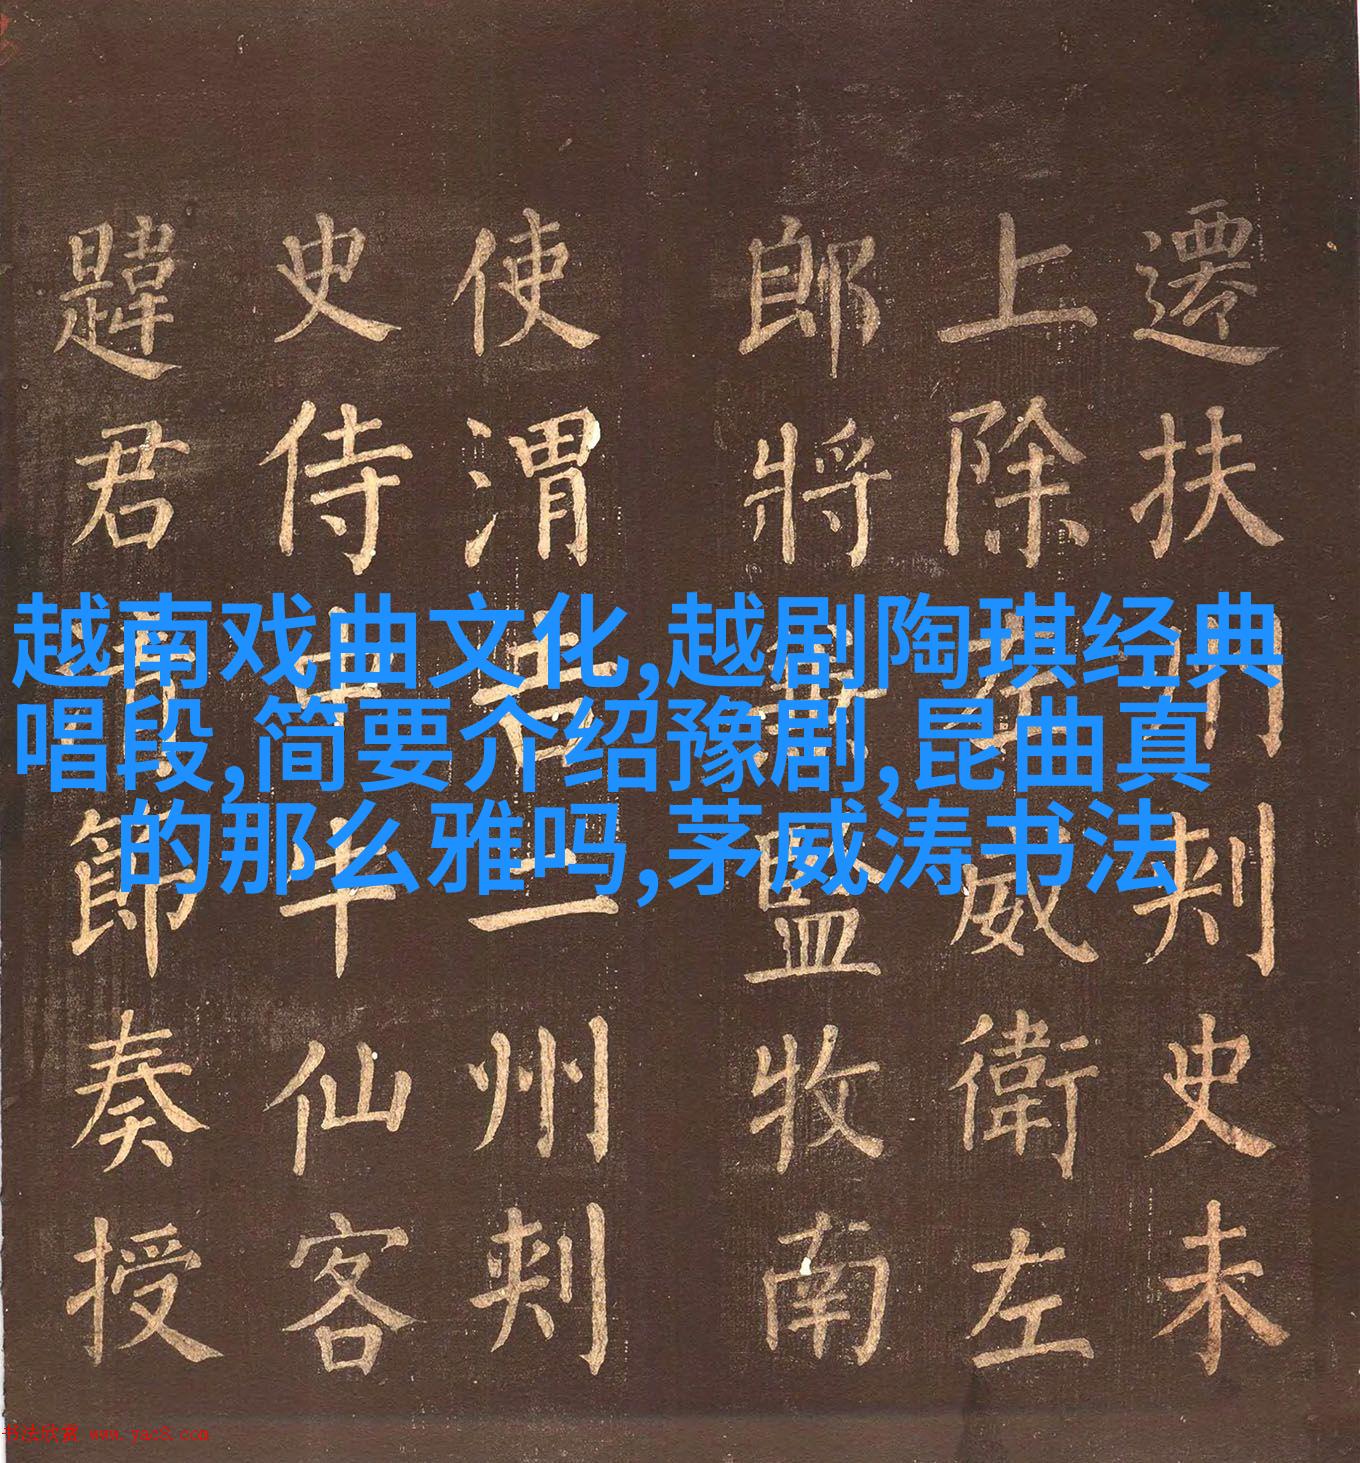 越南戏曲文化,越剧陶琪经典
唱段,简要介绍豫剧,昆曲真
的那么雅吗,茅威涛书法
遷扶州刺史未
上除威衛左
郎將監牧南
使渭二州刺
史侍中牛仙客
韙君節奏授
书法欣赏 www.yac8.com